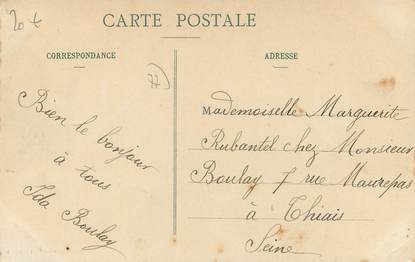 20 €
CARTE POSTALE
CORRESPONDANCE
ADRESSE
77)
Bien le bonjour
à tous
Ida Boulay
Mademoiselle Marguerite
Rubantel chez Monsieur
Boulay 7 rue Maurepas
à Thiais
Seine